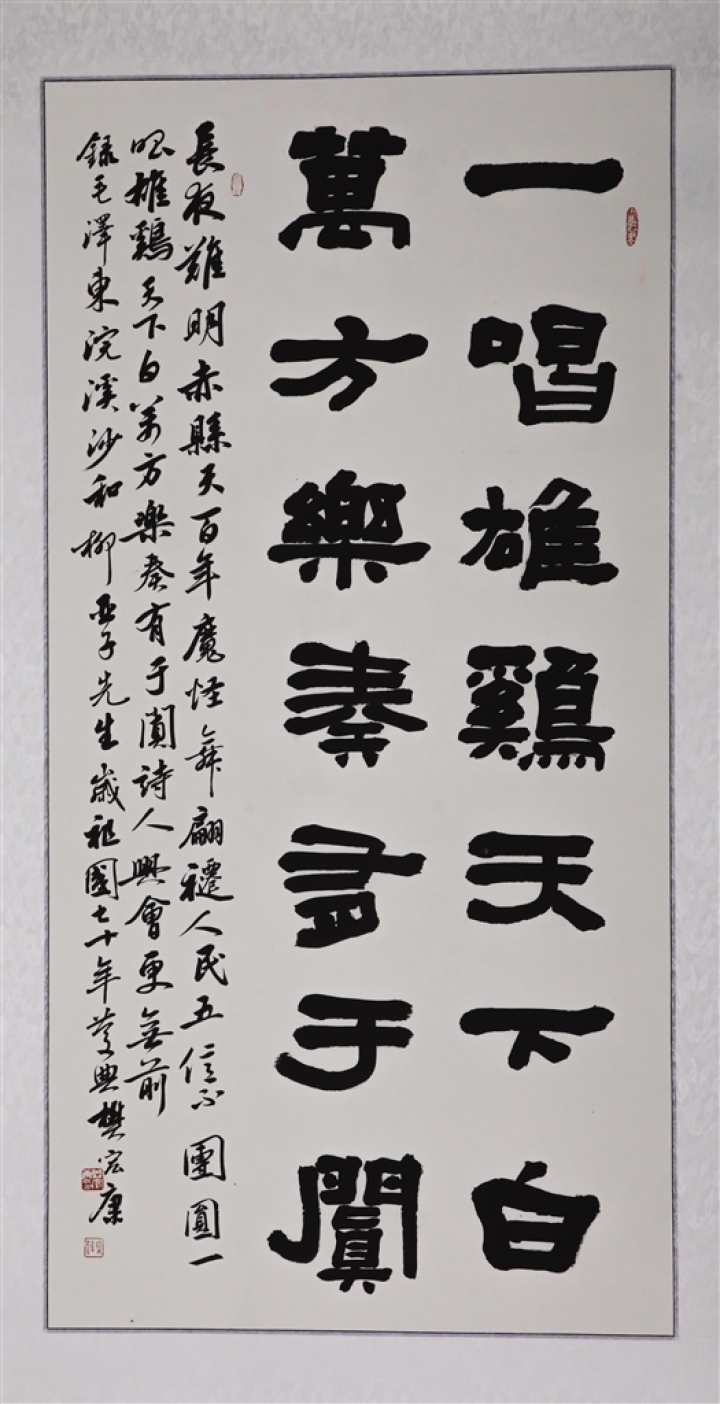 一唱雄鷄天下白
萬方樂奏有于闐
長夜難明赤縣天百年魔怪舞翩躚人民五億不團圓一
唱雄鷄天下白萬方樂奏有于闐詩人興會更無前
録毛澤東浣溪沙和柳亞子先生歲祖國七十年慶典樊宏康